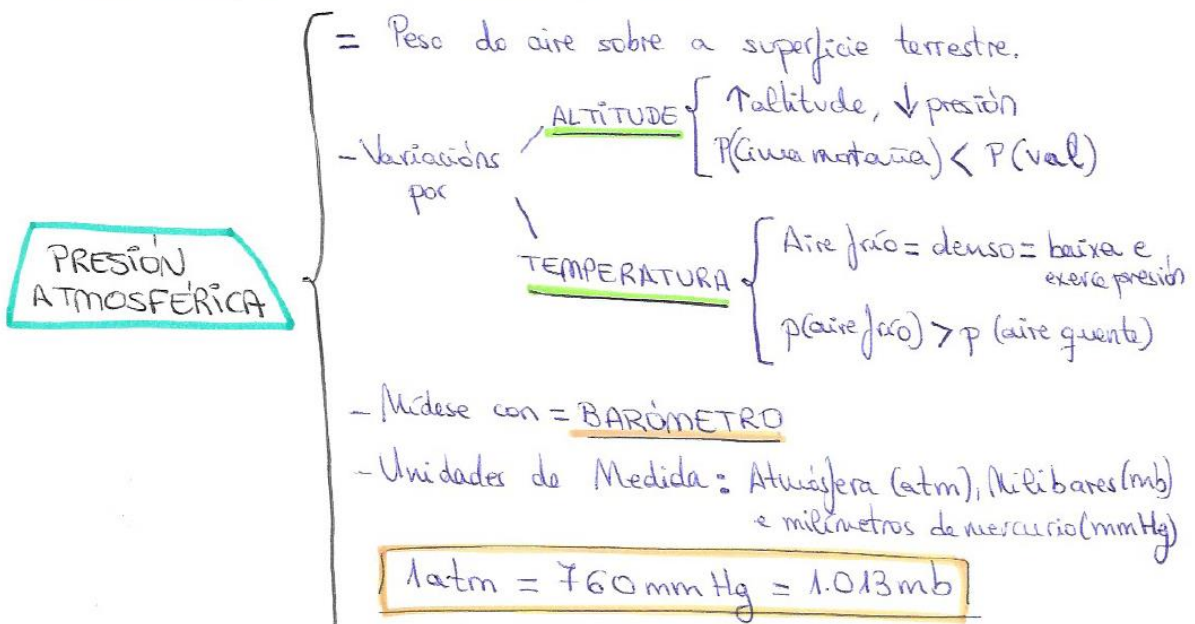 PRESIÓN
ATMOSFÉRICA
= Peso do aire sobre a superficie terrestre.
- Variacións
por
ALTITUDE
↑altitude, ↓ presión
P(Cima montaña) < P(val)
TEMPERATURA
Aire frío = denso = baixa e
exerce presión
p(aire frío) > p (aire quente)
- Mídese con = BARÓMETRO
- Unidades de Medida: Atmósfera (atm), Milibares (mb)
e milímetros de mercurio (mmHg)
1atm = 760 mm Hg = 1.013 mb